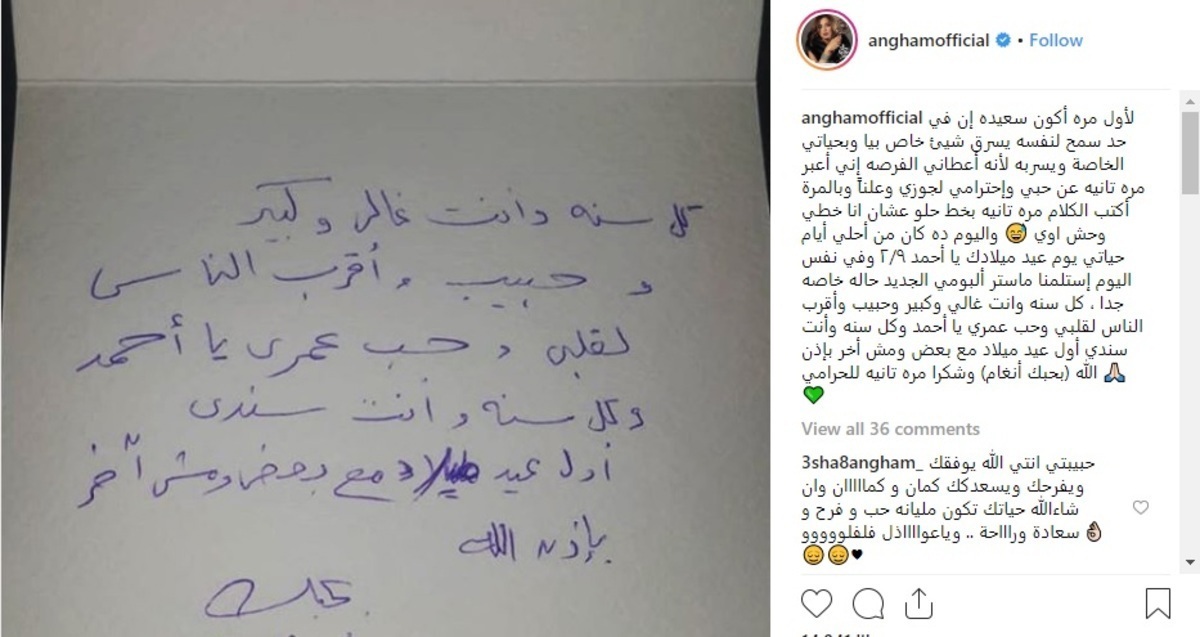 كل سنه وانت غالى وكبير
و حبيب وأقرب الناس
لقلبى و حب عمرى يا أحمد
وكل سنه وانت سندى
أول عيد ميلاد مع بعض ومش آخر
بإذن الله
بحبك
anghamofficial • Follow
anghamofficial لأول مره أكون سعيده إن في
حد سمح لنفسه يسرق شيئ خاص بيا وبحياتي
الخاصة ويسربه لأنه أعطاني الفرصه إني أعبر
مره تانيه عن حبي وإحترامي لجوزي وعلناً وبالمرة
أكتب الكلام مره تانيه بخط حلو عشان انا خطي
وحش اوي 😅 واليوم ده كان من أحلي أيام
حياتي يوم عيد ميلادك يا أحمد ٢/٩ وفي نفس
اليوم إستلمنا ماستر ألبومي الجديد حاله خاصه
جدا ، كل سنه وانت غالي وكبير وحبيب وأقرب
الناس لقلبي وحب عمري يا أحمد وكل سنه وأنت
سندي أول عيد ميلاد مع بعض ومش أخر بإذن
الله (بحبك أنغام) وشكرا مره تانيه للحرامي 🙏🏻
💚
View all 36 comments
3sha8angham_ حبيبتي انتي الله يوفقك
ويفرحك ويسعدكك كمان و كمااااان وان
شاءالله حياتك تكون مليانه حب و فرح و
سعادة وراااحة .. وياعوااااذل فلفلووووو 👌🏻
😔😔♥